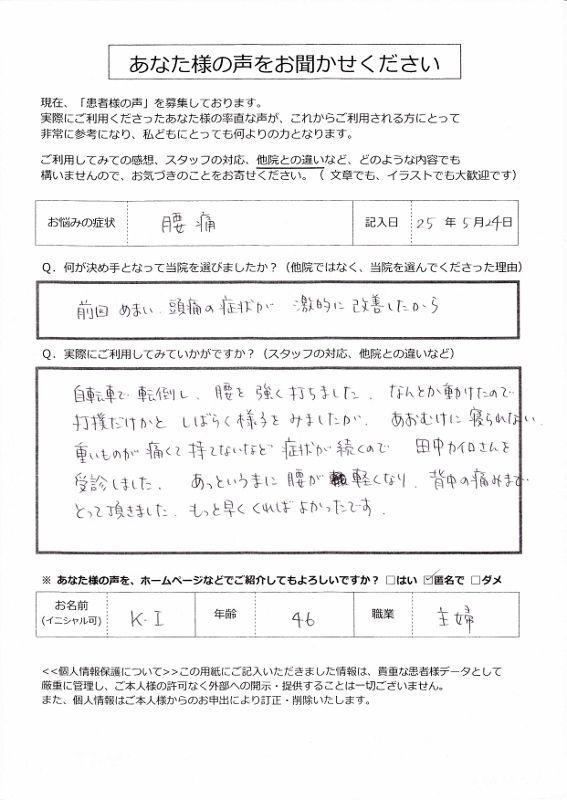 あなた様の声をお聞かせください
現在、「患者様の声」を募集しております。
実際にご利用くださったあなた様の率直な声が、これからご利用される方にとって
非常に参考になり、私どもにとっても何よりの力となります。
ご利用してみての感想、スタッフの対応、他院との違いなど、どのような内容でも
構いませんので、お気づきのことをお寄せください。（ 文章でも、イラストでも大歓迎です）
お悩みの症状 腰痛 記入日 25 年 5 月 24 日
Q．何が決め手となって当院を選びましたか？（他院ではなく、当院を選んでくださった理由）
前回 めまい、頭痛の症状が 激的に改善したから
Q．実際にご利用してみていかがですか？（スタッフの対応、他院との違いなど）
自転車で転倒し、腰を強く打ちました。なんとか動けたので
打撲だけかと しばらく様子をみましたが、あおむけに寝られない、
重いものが痛くて持てないなど 症状が続くので 田中カイロさんを
受診しました。 あっというまに腰が 軽くなり、背中の痛みまで
とって頂きました。もっと早くくればよかったです。
※ あなた様の声を、ホームページなどでご紹介してもよろしいですか？ □はい ☑匿名で □ダメ
お名前 K・I 年齢 46 職業 主婦
(イニシャル可)
<<個人情報保護について>>この用紙にご記入いただきました情報は、貴重な患者様データとして
厳重に管理し、ご本人様の許可なく外部への開示・提供することは一切ございません。
また、個人情報はご本人様からのお申出により訂正・削除いたします。